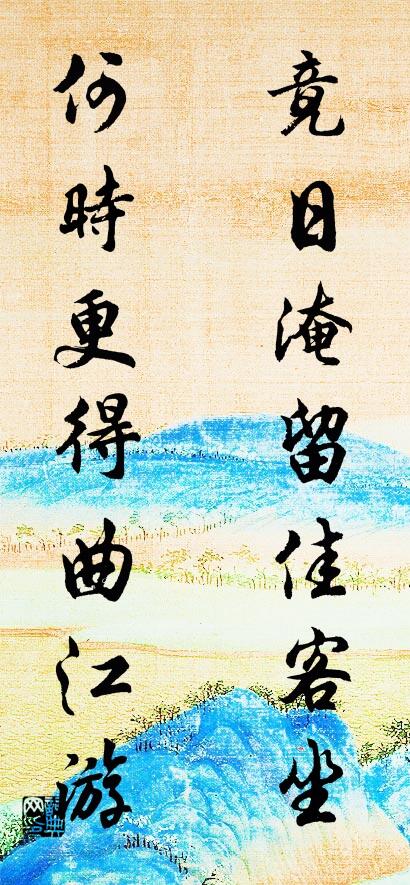 竟日淹留佳客坐
何時更得曲江游